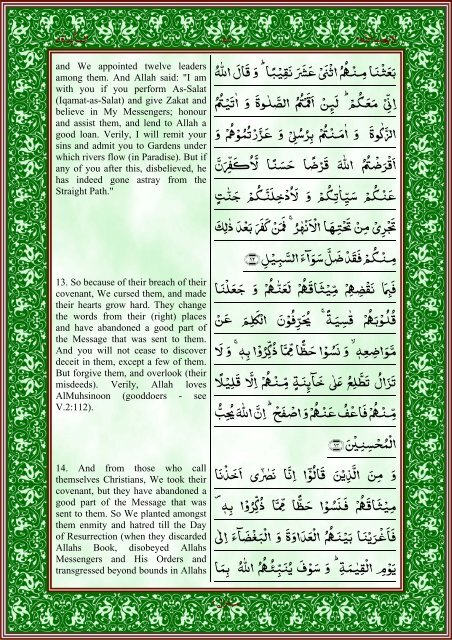 and We appointed twelve leaders
among them. And Allah said: "I am
with you if you perform As-Salat
(Iqamat-as-Salat) and give Zakat and
believe in My Messengers; honour
and assist them, and lend to Allah a
good loan. Verily, I will remit your
sins and admit you to Gardens under
which rivers flow (in Paradise). But if
any of you after this, disbelieved, he
has indeed gone astray from the
Straight Path."
13. So because of their breach of their
covenant, We cursed them, and made
their hearts grow hard. They change
the words from their (right) places
and have abandoned a good part of
the Message that was sent to them.
And you will not cease to discover
deceit in them, except a few of them.
But forgive them, and overlook (their
misdeeds). Verily, Allah loves
AlMuhsinoon (gooddoers - see
V.2:112).
14. And from those who call
themselves Christians, We took their
covenant, but they have abandoned a
good part of the Message that was
sent to them. So We planted amongst
them enmity and hatred till the Day
of Resurrection (when they discarded
Allahs Book, disobeyed Allahs
Messengers and His Orders and
transgressed beyond bounds in Allahs
بَعَثْنَا مِنْهُمُ اثْنَىْ عَشَرَ نَقِيْبًا ؕ وَ قَالَ اللّٰهُ
اِنِّىْ مَعَكُمْ ؕ لَىِٕنْ اَقَمْتُمُ الصَّلٰوةَ وَ اٰتَيْتُمُ
الزَّكٰوةَ وَ اٰمَنْتُمْ بِرُسُلِىْ وَ عَزَّرْتُمُوْهُمْ وَ
اَقْرَضْتُمُ اللّٰهَ قَرْضًا حَسَنًا لَّاُكَفِّرَنَّ
عَنْكُمْ سَيِّاٰتِكُمْ وَ لَاُدْخِلَنَّكُمْ جَنّٰتٍ
تَجْرِىْ مِنْ تَحْتِهَا الْاَنْهٰرُ ۚ فَمَنْ كَفَرَ بَعْدَ ذٰلِكَ
مِنْكُمْ فَقَدْ ضَلَّ سَوَآءَ السَّبِيْلِ ﴿۱۲﴾
فَبِمَا نَقْضِهِمْ مِّيْثَاقَهُمْ لَعَنّٰهُمْ وَ جَعَلْنَا
قُلُوْبَهُمْ قٰسِيَةً ۚ يُحَرِّفُوْنَ الْكَلِمَ عَنْ
مَّوَاضِعِهٖ ۙ وَ نَسُوْا حَظًّا مِّمَّا ذُكِّرُوْا بِهٖ ۚ وَ لَا
تَزَالُ تَطَّلِعُ عَلٰى خَآىِٕنَةٍ مِّنْهُمْ اِلَّا قَلِيْلًا
مِّنْهُمْ فَاعْفُ عَنْهُمْ وَ اصْفَحْ ؕ اِنَّ اللّٰهَ يُحِبُّ
الْمُحْسِنِيْنَ ﴿۱۳﴾
وَ مِنَ الَّذِيْنَ قَالُوْۤا اِنَّا نَصٰرٰۤى اَخَذْنَا
مِيْثَاقَهُمْ فَنَسُوْا حَظًّا مِّمَّا ذُكِّرُوْا بِهٖ ۪
فَاَغْرَيْنَا بَيْنَهُمُ الْعَدَاوَةَ وَ الْبَغْضَآءَ اِلٰى
يَوْمِ الْقِيٰمَةِ ؕ وَ سَوْفَ يُنَبِّئُهُمُ اللّٰهُ بِمَا